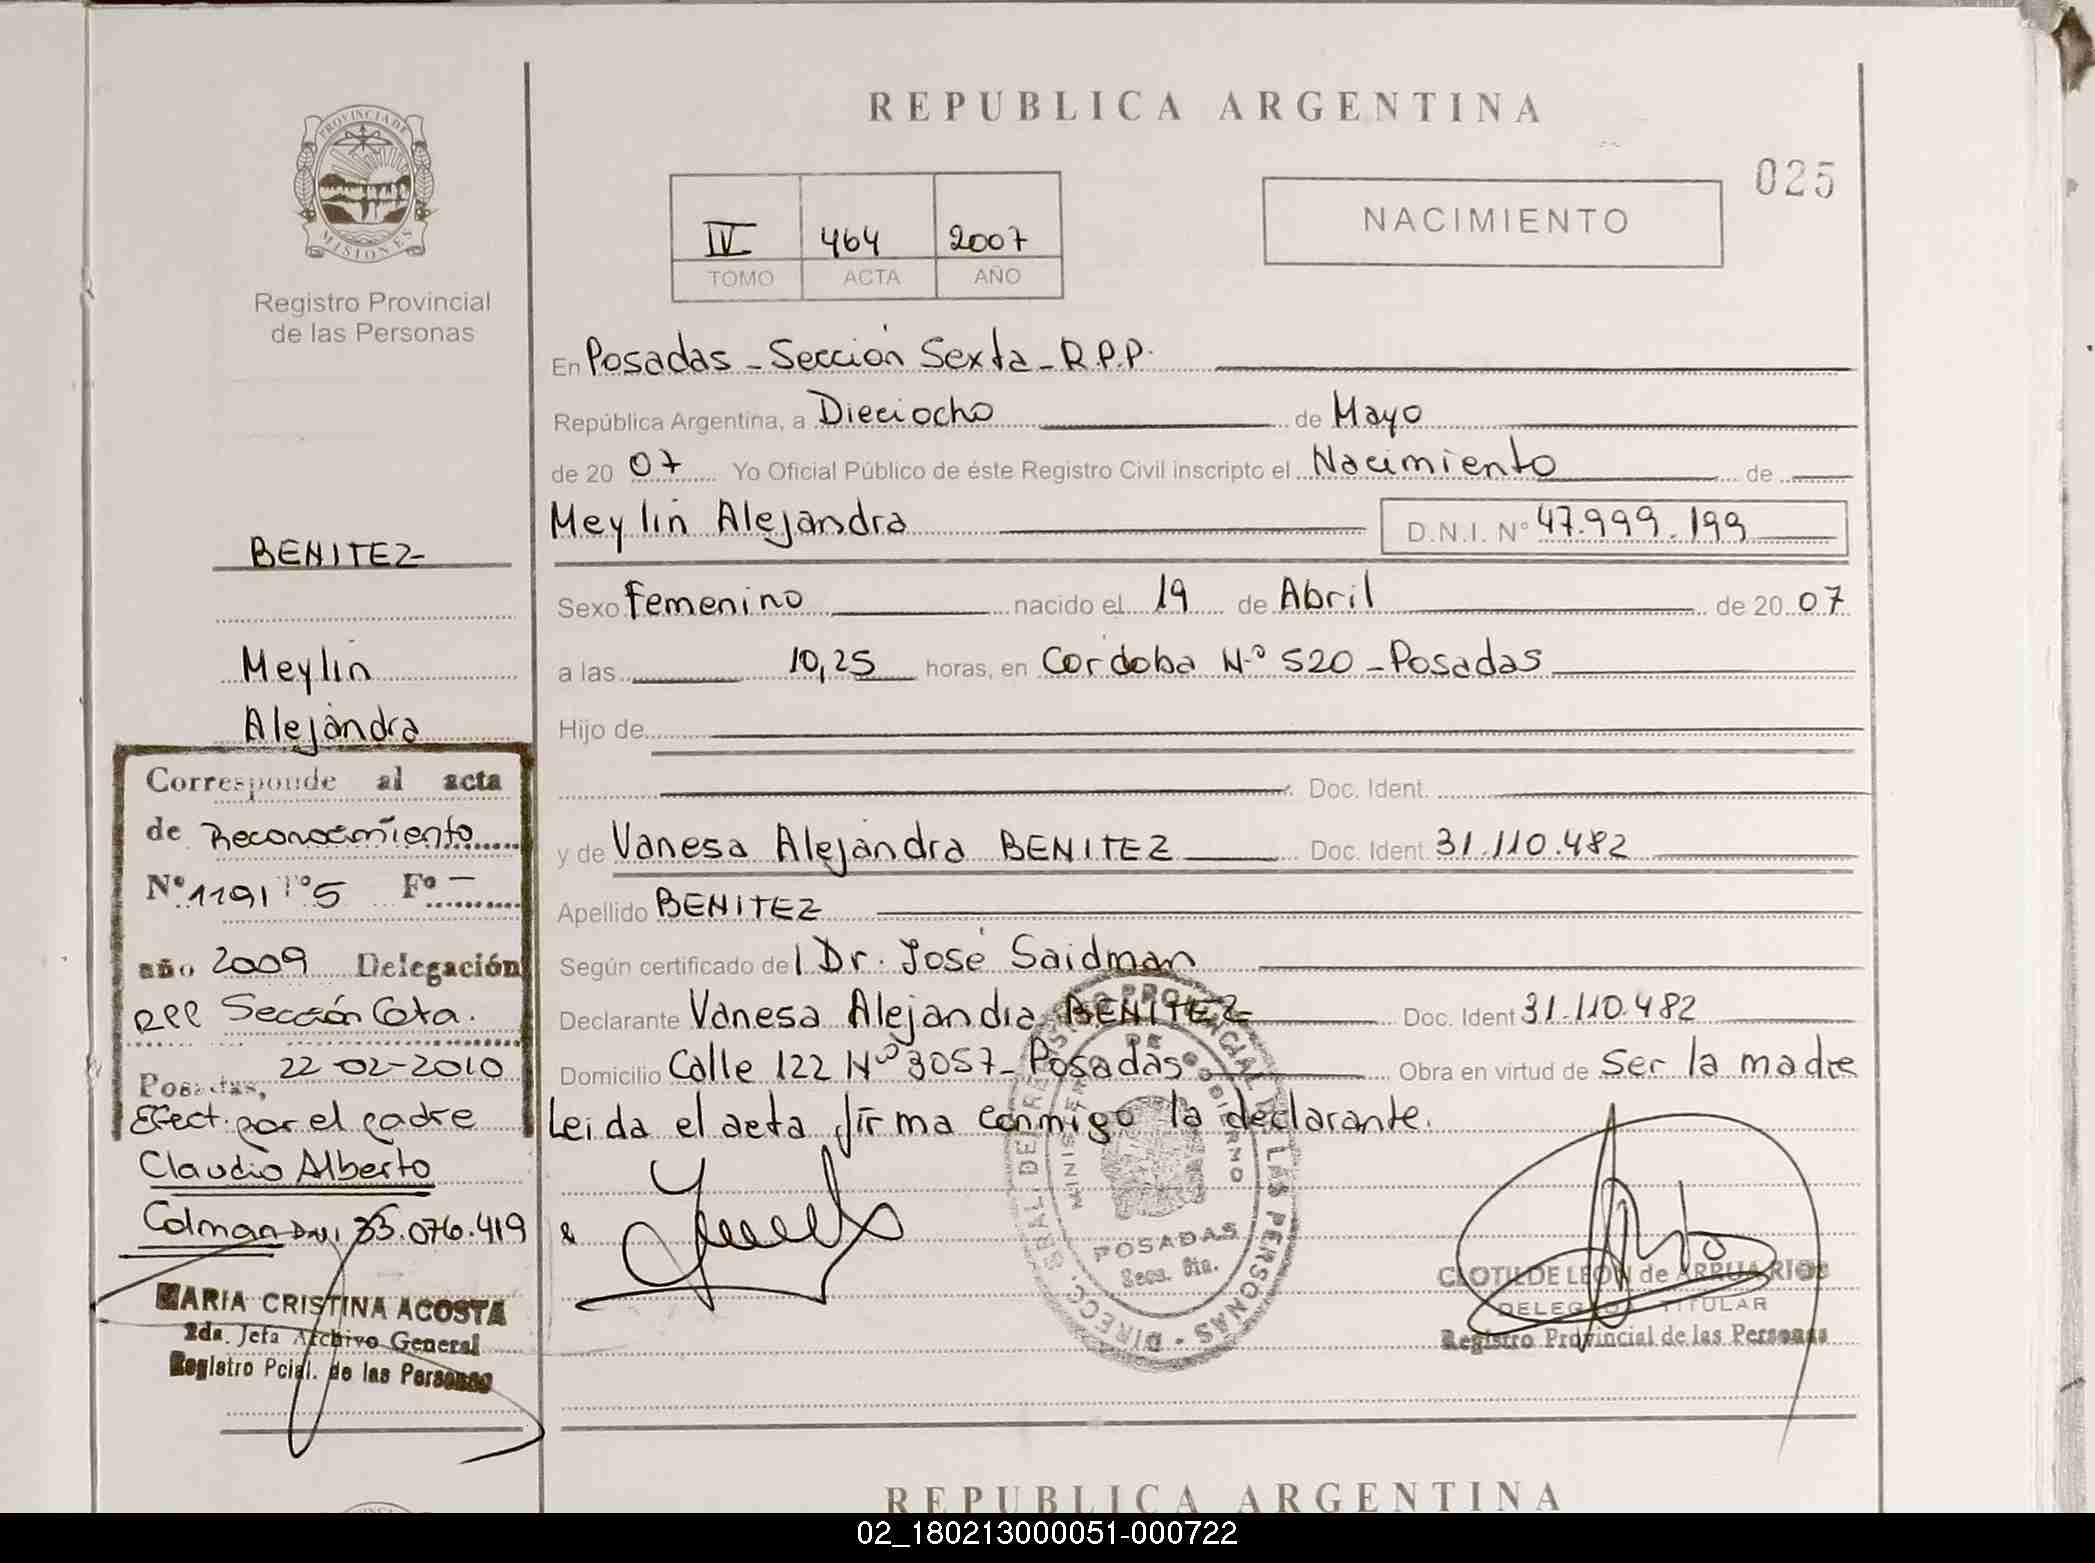 PROVINCIA DE
MISIONES
Registro Provincial
de las Personas
BENITEZ
Meylin
Alejandra
Corresponde al acta
de Reconocimiento
Nº 1191 Tº 5 Fº —
año 2009 Delegación
RPP Sección Cota.
Posadas, 22-02-2010
Efect. por el padre
Claudio Alberto
Colman DNI 33.076.419
MARIA CRISTINA ACOSTA
2da. Jefa Archivo General
Registro Pcial. de las Personas
REPUBLICA ARGENTINA
025
IV 464 2007
TOMO ACTA AÑO
NACIMIENTO
En Posadas - Sección Sexta - R.P.P.
República Argentina, a Dieciocho de Mayo
de 20 07 Yo Oficial Público de éste Registro Civil inscripto el Nacimiento de
Meylin Alejandra D.N.I. Nº 47.999.199
Sexo Femenino nacido el 19 de Abril de 20 07
a las 10,25 horas, en Cordoba Nº 520 - Posadas
Hijo de
Doc. Ident.
y de Vanesa Alejandra BENITEZ Doc. Ident. 31.110.482
Apellido BENITEZ
Según certificado del Dr. José Saidman
Declarante Vanesa Alejandra BENITEZ Doc. Ident 31.110.482
Domicilio Calle 122 Nº 3057 - Posadas Obra en virtud de Ser la madre
Leida el acta firma conmigo la declarante.
POSADAS
CLOTILDE LEON de ARRUA RIOS
DELEGADA TITULAR
Registro Provincial de las Personas
REPUBLICA ARGENTINA
02_180213000051-000722